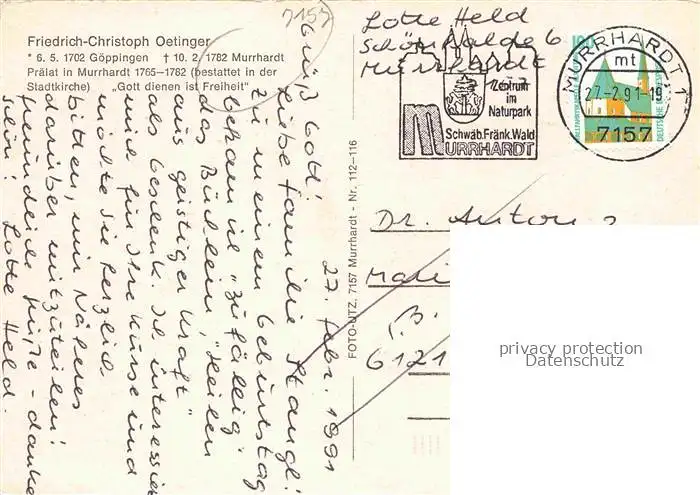 Friedrich-Christoph Oetinger
* 6. 5. 1702 Göppingen † 10. 2. 1782 Murrhardt
Prälat in Murrhardt 1765—1782 (bestattet in der
Stadtkirche) „Gott dienen ist Freiheit"
7157
27. Febr. 1991
Grüß Gott!
Liebe Familie Stangl!
Zu meinem Geburtstag
bekam ich „zufällig"
das Büchlein „Heilen
aus geistiger Kraft"
als Geschenk. Ich interessiere
mich für Ihre Kurse und
möchte Sie herzlich
bitten, mir Näheres
darüber mitzuteilen!
Freundliche Grüße - danke
schön! Lotte Held.
FOTO-UTZ, 7157 Murrhardt - Nr. 112—116
Lotte Held
Schönhalde 6
Murrhardt
7157
Zentrum
im
Naturpark
Schwäb. Fränk. Wald
MURRHARDT
MURRHARDT 1
mt
27.-2.91-19
7157
100
DEUTSCHE BUNDESPOST
Dr. Anton
6121
privacy protection
Datenschutz